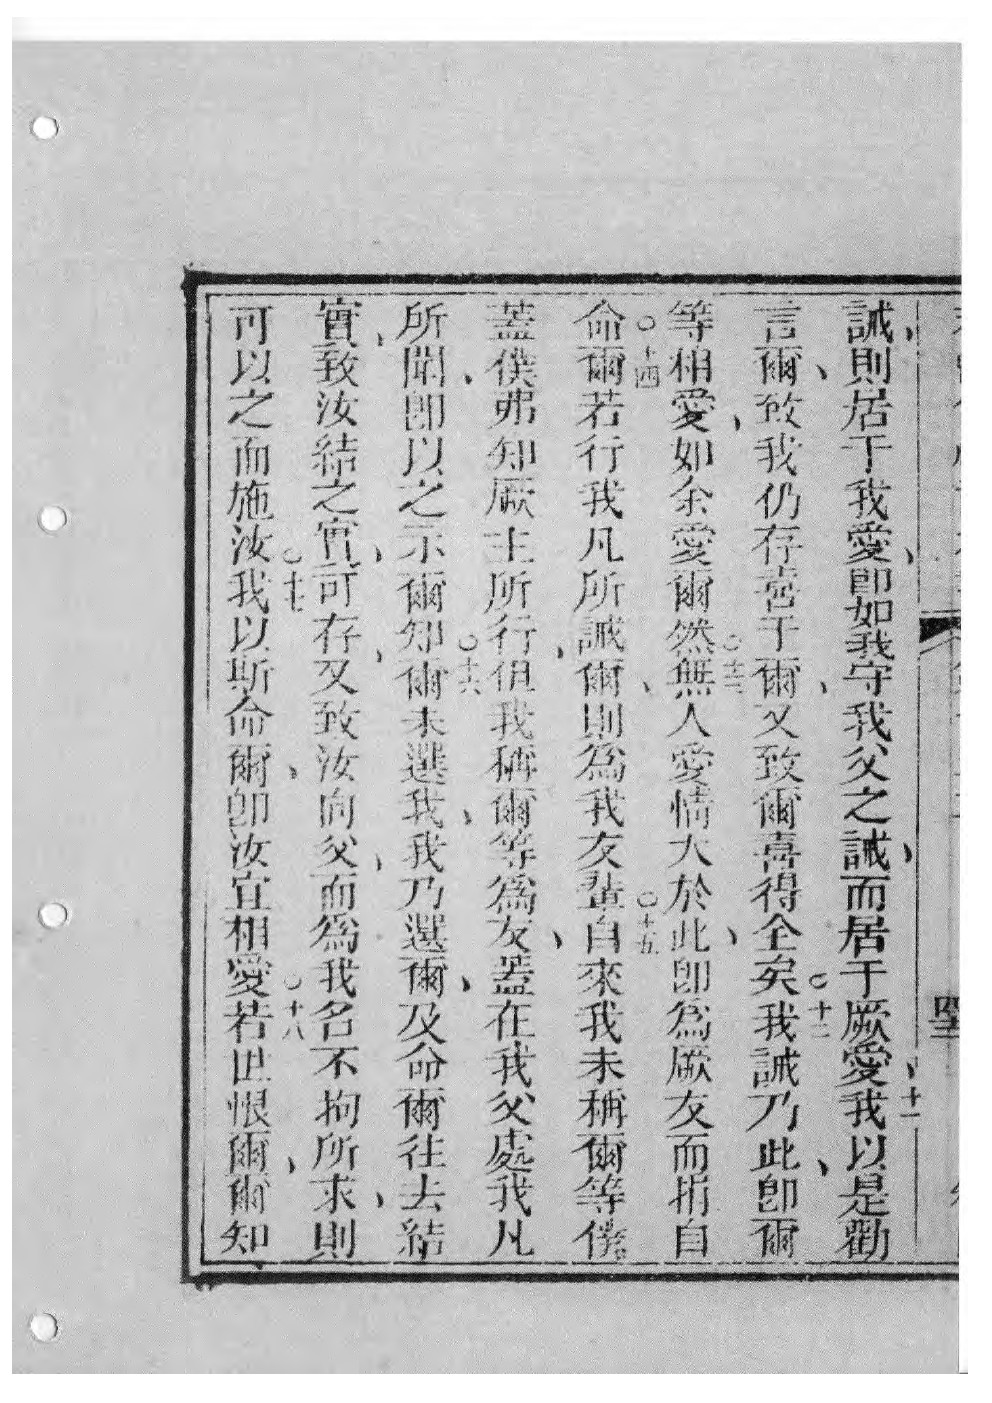 誡、則居于我愛、卽如我守我父之誡、而居于厥愛、十一我以是勸
言爾、致我仍存喜于爾、又致爾喜得全矣。○十二我誡乃此、卽爾
等相愛、如余愛爾然。○十三無人愛情大於此、卽爲厥友而捐自
命。○十四爾若行我凡所誡爾、則爲我友輩。○十五自來我未稱爾等僕。
蓋僕弗知厥主所行、但我稱爾等爲友、蓋在我父處我凡
所聞、卽以之示爾知。○十六爾未選我、我乃選爾、及命爾往去結
實、致汝結之實、可存、又致汝向父、而爲我名不拘所求、則
可以之而施汝。○十七我以斯命爾、卽汝宜相愛。○十八若世恨爾、爾知
四